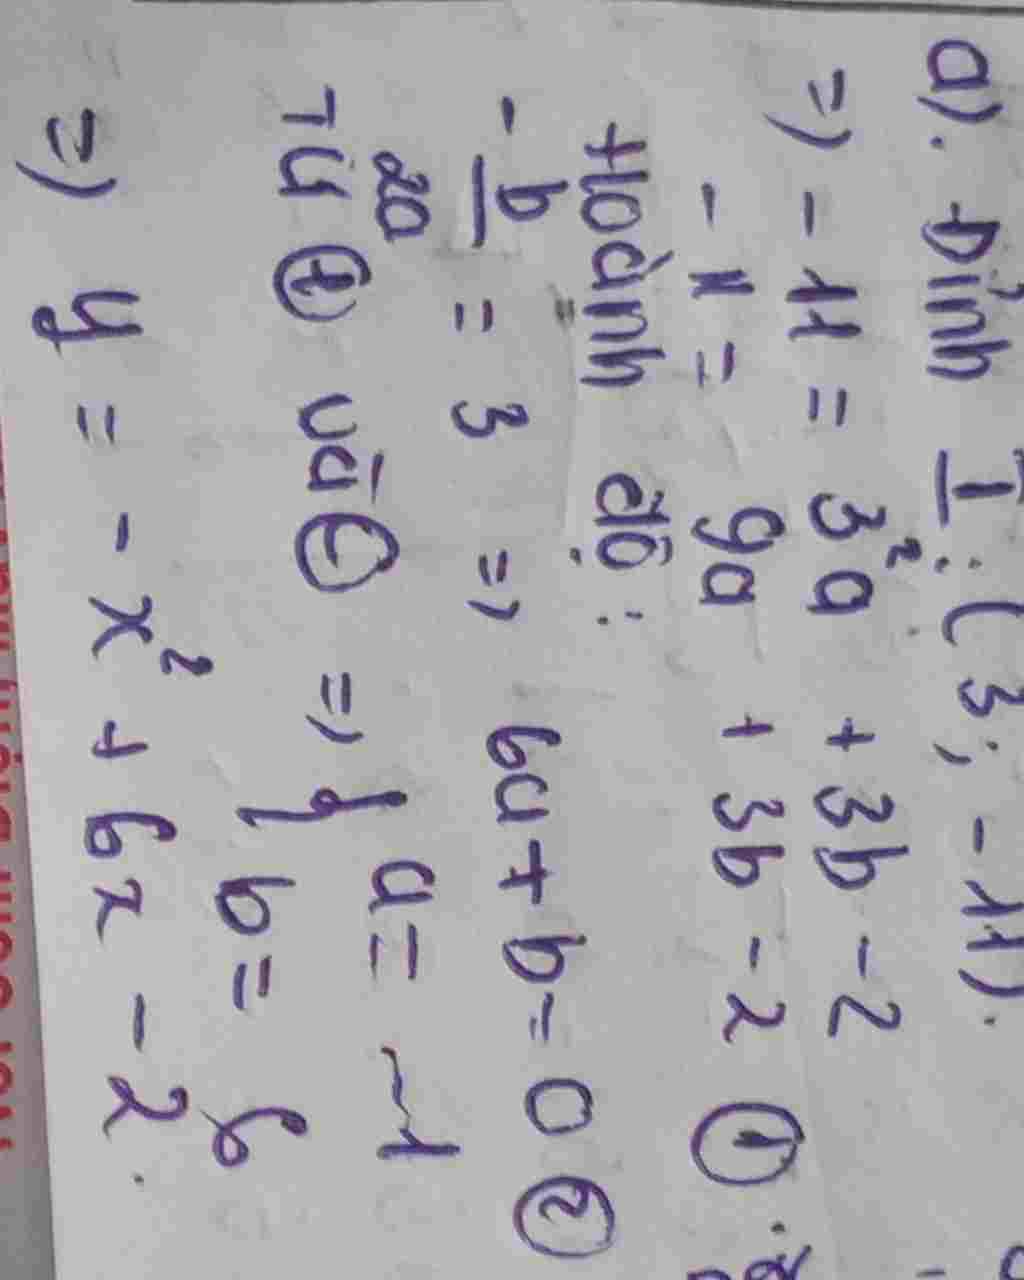 a). Đỉnh I : (3; -11).
=) - 11 = 3²a + 3b - 2
- 11 = 9a + 3b - 2 ①
Hoành độ :
- b/2a = 3 => 6a + b = 0 ②
Từ ① và ② => { a = -1
b = 6
=) y = - x² + 6x - 2.